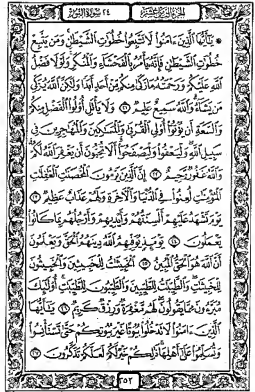 الجزء الثامن عشر
٢٤ سورة النور
يَٰٓأَيُّهَا ٱلَّذِينَ ءَامَنُوا۟ لَا تَتَّبِعُوا۟ خُطُوَٰتِ ٱلشَّيْطَٰنِ وَمَن يَتَّبِعْ
خُطُوَٰتِ ٱلشَّيْطَٰنِ فَإِنَّهُۥ يَأْمُرُ بِٱلْفَحْشَآءِ وَٱلْمُنكَرِ وَلَوْلَا فَضْلُ
ٱللَّهِ عَلَيْكُمْ وَرَحْمَتُهُۥ مَا زَكَىٰ مِنكُم مِّنْ أَحَدٍ أَبَدًا وَلَٰكِنَّ ٱللَّهَ يُزَكِّى
مَن يَشَآءُ وَٱللَّهُ سَمِيعٌ عَلِيمٌ ٢١ وَلَا يَأْتَلِ أُو۟لُوا۟ ٱلْفَضْلِ مِنكُمْ
وَٱلسَّعَةِ أَن يُؤْتُوٓا۟ أُو۟لِى ٱلْقُرْبَىٰ وَٱلْمَسَٰكِينَ وَٱلْمُهَٰجِرِينَ فِى
سَبِيلِ ٱللَّهِ وَلْيَعْفُوا۟ وَلْيَصْفَحُوٓا۟ أَلَا تُحِبُّونَ أَن يَغْفِرَ ٱللَّهُ لَكُمْ
وَٱللَّهُ غَفُورٌ رَّحِيمٌ ٢٢ إِنَّ ٱلَّذِينَ يَرْمُونَ ٱلْمُحْصَنَٰتِ ٱلْغَٰفِلَٰتِ
ٱلْمُؤْمِنَٰتِ لُعِنُوا۟ فِى ٱلدُّنْيَا وَٱلْءَاخِرَةِ وَلَهُمْ عَذَابٌ عَظِيمٌ ٢٣
يَوْمَ تَشْهَدُ عَلَيْهِمْ أَلْسِنَتُهُمْ وَأَيْدِيهِمْ وَأَرْجُلُهُم بِمَا كَانُوا۟
يَعْمَلُونَ ٢٤ يَوْمَئِذٍ يُوَفِّيهِمُ ٱللَّهُ دِينَهُمُ ٱلْحَقَّ وَيَعْلَمُونَ
أَنَّ ٱللَّهَ هُوَ ٱلْحَقُّ ٱلْمُبِينُ ٢٥ ٱلْخَبِيثَٰتُ لِلْخَبِيثِينَ وَٱلْخَبِيثُونَ
لِلْخَبِيثَٰتِ وَٱلطَّيِّبَٰتُ لِلطَّيِّبِينَ وَٱلطَّيِّبُونَ لِلطَّيِّبَٰتِ أُو۟لَٰٓئِكَ
مُبَرَّءُونَ مِمَّا يَقُولُونَ لَهُم مَّغْفِرَةٌ وَرِزْقٌ كَرِيمٌ ٢٦ يَٰٓأَيُّهَا
ٱلَّذِينَ ءَامَنُوا۟ لَا تَدْخُلُوا۟ بُيُوتًا غَيْرَ بُيُوتِكُمْ حَتَّىٰ تَسْتَأْنِسُوا۟
وَتُسَلِّمُوا۟ عَلَىٰٓ أَهْلِهَا ذَٰلِكُمْ خَيْرٌ لَّكُمْ لَعَلَّكُمْ تَذَكَّرُونَ ٢٧
٣٥٢